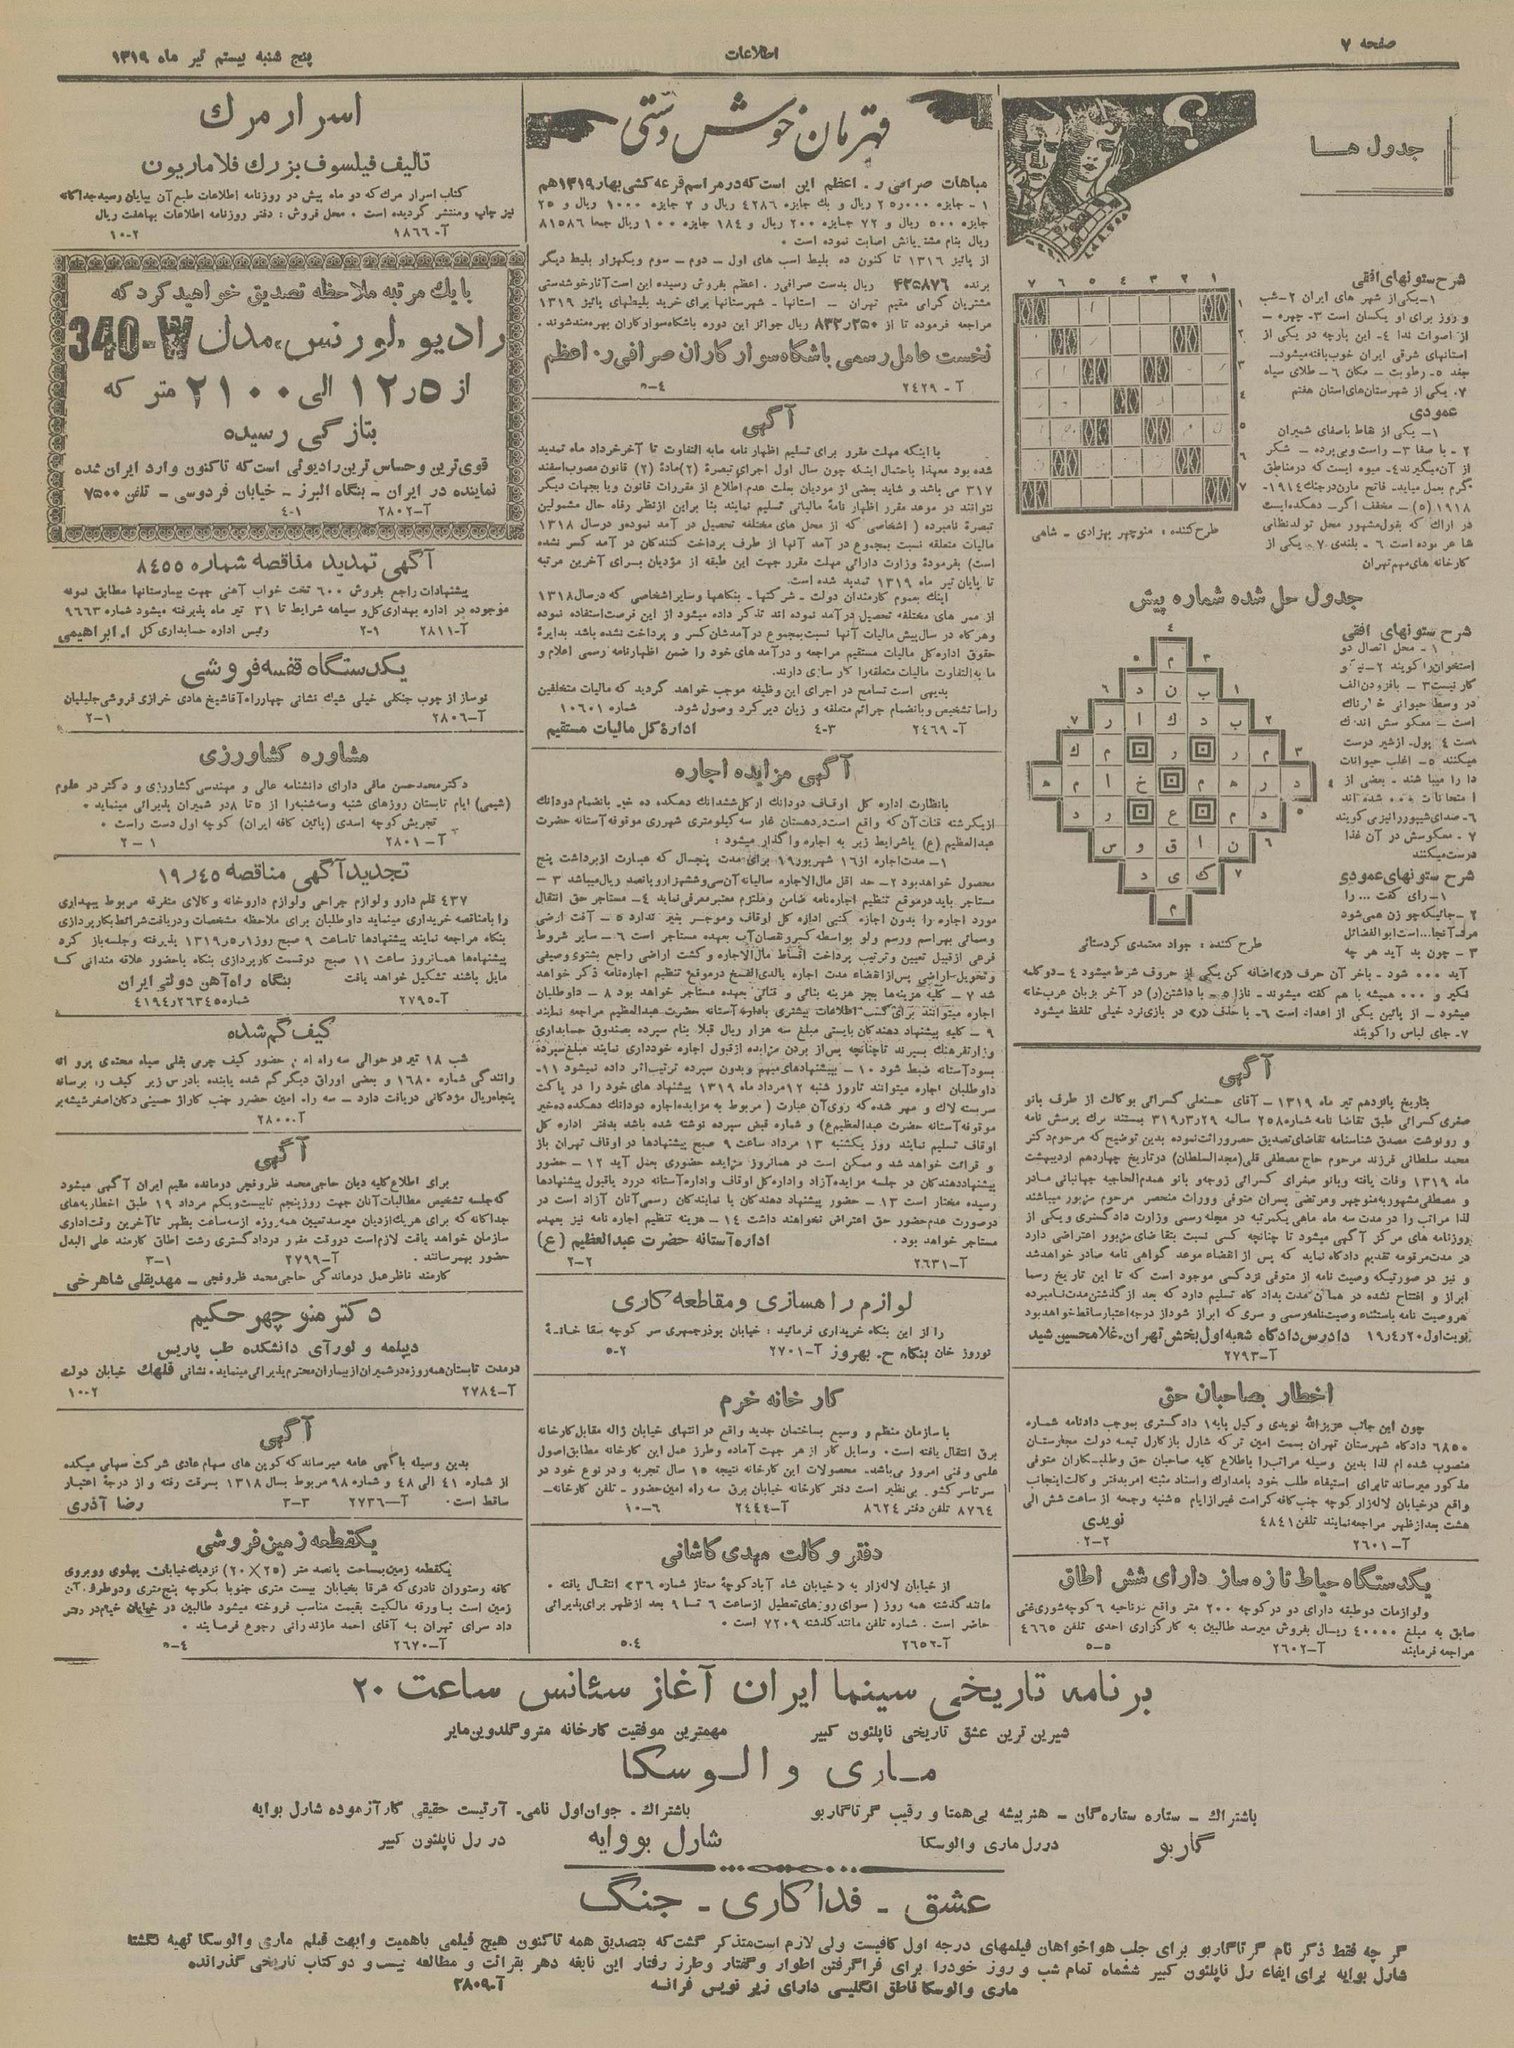 صفحه ۷
اطلاعات
پنج شنبه بیستم تیر ماه ۱۳۱۹
جدول ها
شرح ستونهای افقی
۱- یکی از شهر های ایران ۲- شب
و روز برای او یکسان است ۳- چهره -
از اصوات ندا ۴- این پارچه در یکی از
استانهای شرقی ایران خوب بافته میشود-
جغد ۵- رطوبت - مکان ۶- طلای سیاه
۷- یکی از شهرستان‌های استان هفتم
عمودی
۱- یکی از نقاط باصفای شمیران
۲- با صفا ۳- راست و بی پرده - شکر
از آن میگیرند ۴- میوه ایست که در مناطق
گرم بعمل میاید- فاتح مارن در جنگ ۱۹۱۴-
۱۹۱۸ (۵) - مخفف اگر- دهکده ایست
در اراک که بقول مشهور محل تولد نظامی
شاعر بوده است ۶- بلندی ۷- یکی از
کارخانه های مهم تهران
طرح کننده : منوچهر بهزادی - شاهی
جدول حل شده شماره پیش
شرح ستونهای افقی
۱- محل اتصال دو
استخوان را گویند ۲-
کار نیست ۳- بافزودن الف
در وسط حیوانی خطرناک
است - معکوسش اندک
است ۴ پول- از شیر درست
میکنند ۵- اغلب حیوانات
دارا میباشند - بعضی از
امتحانات ۰۰۰ شده اند
۶- صدای شیپور را نیز میگویند
۷- معکوسش در آن غذا
درست میکنند
شرح ستونهای عمودی
۱- رای گفت ... را
۲- جائیکه چو زن همی شود
مرد آنجا...است ابوالفضائل
۳- چون بد آید هر چه
آید ۰۰۰ شود - باخر آن حرف «ر» اضافه کن یکی از حروف شرط میشود ۴- دو کلمه
فکیر و ۰۰۰ همیشه با هم گفته میشوند - نازا ۵- با داشتن (ر) در آخر بزبان عرب خانه
میشود - از پائین یکی از اعداد است ۶- با حذف «ر» در بازی نرد خیلی تلفظ میشود
۷- جای لباس را گویند
طرح کننده : جواد معتمدی کردستانی
آگهی
بتاریخ پانزدهم تیر ماه ۱۳۱۹ - آقای حسنعلی کسرائی بوکالت از طرف بانو
صغری کسرائی طبق تقاضا نامه شماره ۲۵۸ ساله ۳۱۹ر۳ر۲۹ بمستند برک پرسش نامه
و رونوشت مصدق شناسنامه تقاضای تصدیق حصر وراثت نموده بدین توضیح که مرحوم دکتر
محمد سلطانی فرزند مرحوم حاج مصطفی قلی (مجدالسلطان) در تاریخ چهاردهم اردیبهشت
ماه ۱۳۱۹ وفات یافته و بانو صغرای کسرائی زوجه و بانو همدم الحاجیه جهانبانی مادر
و مصطفی مشهور به منوچهر و مرتضی پسران متوفی و وراث منحصر مرحوم مزبور میباشند
لذا مراتب را در مدت سه ماه ماهی یکمرتبه در مجله رسمی وزارت دادگستری و یکی از
روزنامه های مرکز آگهی میشود تا چنانچه کسی نسبت بتقاضای مزبور اعتراضی دارد
در مدت مرقومه تقدیم دادگاه نماید که پس از انقضاء موعد گواهی نامه صادر خواهد شد
و نیز در صورتیکه وصیت نامه از متوفی نزد کسی موجود است که تا این تاریخ رسما
ابراز و افتتاح نشده در همان مدت بدادگاه تسلیم دارد که بعد از گذشتن مدت نامبرده
هر وصیت نامه باستثناء وصیت نامه رسمی و سری که ابراز شود از درجه اعتبار ساقط خواهد بود
نوبت اول ۱۹ر۴ر۲۰ دادرس دادگاه شعبه اول بخش تهران-غلامحسین شید
آ-۲۷۹۳
اخطار بصاحبان حق
چون این جانب عزیز‌الله نویدی وکیل پایه ۱ دادگستری بموجب دادنامه شماره
۶۸۵۰ دادگاه شهرستان تهران بسمت امین ترکه شارل بازکارل تبعه دولت مجارستان
منصوب شده ام لذا بدین وسیله مراتب را باطلاع کلیه صاحبان حق و طلبکاران متوفی
مذکور میرساند تا برای استیفاء طلب خود با مدارک و اسناد مثبته امر بدفتر وکالت اینجانب
واقع در خیابان لاله‌زار کوچه جنب کافه کرامت غیر از ایام ۵شنبه و جمعه از ساعت شش الی
هشت بعد از ظهر مراجعه نمایند تلفن ۴۸۴۱
نویدی
آ-۲۶۰۱ ۲-۰۲
یکدستگاه حیاط تازه ساز دارای شش اطاق
و لوازمات دو طبقه دارای دو در کوچه ۲۰۰ متر واقع در ناحیه ۶ کوچه شوری غنی
سابق به مبلغ ۴۰۰۰۰ ریال بفروش میرسد طالبین به کارگزاری احدی تلفن ۴۶۶۵
مراجعه فرمایند آ-۲۶۰۲ ۵-۵
قهرمان خوش دستی
مباهات صرافی ر. اعظم این است که در مراسم قرعه کشی بهار ۱۳۱۹ هم
۱- جایزه ۲۵ر۰۰۰ ریال و یک جایزه ۴۲۸۶ ریال و ۲ جایزه ۱۰۰۰ ریال و ۲۵
جایزه ۵۰۰ ریال و ۷۲ جایزه ۲۰۰ ریال و ۱۸۴ جایزه ۱۰۰ ریال جمعا ۸۱۵۸۶
ریال بنام مشتریانش اصابت نموده است .
از پائیز ۱۳۱۶ تا کنون ده بلیط اسب های اول - دوم - سوم و یکهزار بلیط دیگر
برنده ۴۳۵۸۷۶ ریال بدست صرافی ر. اعظم بفروش رسیده این است آثار خوشدستی
مشتریان گرامی مقیم تهران - استانها - شهرستانها برای خرید بلیطهای پائیز ۱۳۱۹
مراجعه فرموده تا از ۸۳۲ر۲۵۰ ریال جوائز این دوره باشگاه سوارکاران بهره‌مند شوند .
نخست عامل رسمی باشگاه سوارکاران صرافی ر. اعظم
آ-۲۴۲۹ ۴-۵
آگهی
با اینکه مهلت مقرر برای تسلیم اظهار نامه مابه التفاوت تا آخر خرداد ماه تمدید
شده بود معهذا باحتمال اینکه چون سال اول اجرای تبصرهٔ (۲) مادهٔ (۲) قانون مصوب اسفند
۳۱۷ می باشد و شاید بعضی از مودیان بعلت عدم اطلاع از مقررات قانون و یا بجهات دیگر
نتوانند در موعد مقرر اظهار نامهٔ مالیاتی تسلیم نمایند بنا براین از نظر رفاه حال مشمولین
تبصرهٔ نامبرده ( اشخاصی که از محل های مختلفه تحصیل در آمد نموده و در سال ۱۳۱۸
مالیات متعلقه نسبت بمجموع در آمد آنها از طرف پرداخت کنندگان در آمد کسر نشده
است) بفرمودهٔ وزارت دارائی مهلت مقرر جهت این طبقه از مؤدیان برای آخرین مرتبه
تا پایان تیر ماه ۱۳۱۹ تمدید شده است .
اینک بعموم کارمندان دولت - شرکتها - بنگاهها و سایر اشخاصی که در سال ۱۳۱۸
از ممر های مختلفه تحصیل درآمد نموده اند تذکر داده میشود از این فرصت استفاده نموده
و هرگاه در سال پیش مالیات آنها نسبت بمجموع درآمدشان کسر و پرداخت نشده باشد بدایرهٔ
حقوق اداره کل مالیات مستقیم مراجعه و درآمدهای خود را ضمن اظهارنامه رسمی اعلام و
مابه‌التفاوت مالیات متعلقه را کارسازی دارند.
بدیهی است تسامح در اجرای این وظیفه موجب خواهد گردید که مالیات متخلفین
راسا تشخیص و بانضمام جرائم متعلقه و زیان دیرکرد وصول شود. شماره ۱۰۶۰۱
آ-۲۴۶۹ ۳-۴ اداره کل مالیات مستقیم
آگهی مزایده اجاره
بانظارت اداره کل اوقاف دودانک از کل ششدانک دهکده ده خیر بانضمام دودانک
از یکرشته قنات آن که واقع است در دهستان غار سه کیلومتری شهرری موقوفه آستانه حضرت
عبدالعظیم (ع) باشرایط زیر به اجاره واگذار میشود :
۱- مدت اجاره از ۱۶ شهریور ۱۹ برای مدت پنجسال که عبارت از برداشت پنج
محصول خواهد بود ۲- حد اقل مال‌الاجاره سالیانه آن سی و ششهزار و پانصد ریال میباشد ۳-
مستاجر باید در موقع تنظیم اجاره‌نامه ضامن و ملتزم معتبر معرفی نماید ۴- مستاجر حق انتقال
مورد اجاره را بدون اجازه کتبی اداره کل اوقاف و موجر بغیر ندارد ۵- آفت ارضی
و سمائی بهر اسم و رسم ولو بواسطه کسر و نقصان آب بعهده مستاجر است ۶- سایر شروط
فرعی از قبیل تعیین و ترتیب پرداخت اقساط مال‌الاجاره و کشت اراضی راجع بشتوی و صیفی
و تحویل اراضی پس از انقضاء مدت اجاره یا لدی‌الفسخ در موقع تنظیم اجاره‌نامه ذکر خواهد
شد ۷- کلیه هزینه‌ها بجز هزینه بنائی و قنائی بعهده مستاجر خواهد بود ۸- داوطلبان
اجاره میتوانند برای کسب اطلاعات بیشتری باداره آستانه حضرت عبدالعظیم مراجعه نمایند
۹- کلیه پیشنهاد دهندگان بایستی مبلغ سه هزار ریال قبلا بنام سپرده بصندوق حسابداری
وزارت فرهنگ بسپرند تا چنانچه پس از بردن مزایده از قبول اجاره خودداری نمایند مبلغ سپرده
بسود آستانه ضبط شود ۱۰- بپیشنهادهای مبهم و بدون سپرده ترتیب اثر داده نمیشود ۱۱-
داوطلبان اجاره میتوانند تا روز شنبه ۱۲ مرداد ماه ۱۳۱۹ پیشنهاد های خود را در پاکت
سربسته لاک و مهر شده که روی آن عبارت ( مربوط به مزایده اجاره دودانک دهکده ده خیر
موقوفه آستانه حضرت عبدالعظیم ع) و شماره قبض سپرده نوشته شده باشد بدفتر اداره کل
اوقاف تسلیم نمایند روز یکشنبه ۱۳ مرداد ساعت ۹ صبح پیشنهادها در اوقاف تهران باز
و قرائت خواهد شد و ممکن است در همانروز مزایده حضوری بعمل آید ۱۲- حضور
پیشنهاددهندگان در جلسه مزایده آزاد و اداره کل اوقاف و اداره آستانه در رد یا قبول پیشنهادها
رسیده مختار است ۱۳- حضور پیشنهاد دهندگان یا نمایندگان رسمی آنان آزاد است در
درصورت عدم حضور حق اعتراض نخواهند داشت ۱۴- هزینه تنظیم اجاره نامه نیز بعهده
مستاجر خواهد بود . اداره آستانه حضرت عبدالعظیم (ع)
آ-۲۶۳۱ ۲-۲
لوازم راهسازی و مقاطعه کاری
را از این بنگاه خریداری فرمائید : خیابان بوذرجمهری سر کوچه سقا خانهٔ
نوروز خان بنگاه ح. بهروز آ-۲۷۰۱ ۲-۵
کارخانه خرم
با سازمان منظم و وسیع بساختمان جدید واقع در انتهای خیابان ژاله مقابل کارخانه
برق انتقال یافته است . وسایل کار از هر جهت آماده و طرز عمل این کارخانه مطابق اصول
علمی و فنی امروز می‌باشد. محصولات این کارخانه نتیجه ۱۵ سال تجربه و در نوع خود در
سرتاسر کشور بی‌نظیر است دفتر کارخانه خیابان برق سه راه امین‌حضور - تلفن کارخانه-
۸۷۶۴ تلفن دفتر ۸۶۲۴ آ-۲۴۴۴ ۶-۱۰
دفتر وکالت مهدی کاشانی
از خیابان لاله‌زار به «خیابان شاه آباد کوچهٔ ممتاز شماره ۳۶» انتقال یافته .
مانند گذشته همه روز ( سوای روزهای تعطیل از ساعت ۶ تا ۹ بعد از ظهر برای پذیرائی
حاضر است . شماره تلفن مانند گذشته ۷۲۰۹ است .
آ-۲۶۵۲ ۴-۵
اسرار مرك
تألیف فیلسوف بزرك فلاماریون
کتاب اسرار مرك که دو ماه پیش در روزنامه اطلاعات طبع آن بپایان رسید جداگانه
نیز چاپ و منتشر گردیده است . محل فروش : دفتر روزنامه اطلاعات بهاهفت ریال
آ-۹۸۶۶ ۲-۱۰
با یك مرتبه ملاحظه تصدیق خواهید کرد که
رادیو «لورنس» مدل 340-W
از ۱۲ر۵ الی ۲۱۰۰ متر که
بتازگی رسیده
قوی‌ترین و حساس ترین رادیوئی است که تاکنون وارد ایران شده
نماینده در ایران - بنگاه البرز - خیابان فردوسی - تلفن ۷۵۰۰
آ-۲۸۰۲ ۱-۴
آگهی تمدید مناقصه شماره ۸۴۵۵
پیشنهادات راجع بفروش ۶۰۰ تخت خواب آهنی جهت بیمارستانها مطابق نمونه
موجوده در اداره بهداری کل و سیاهه شرایط تا ۳۱ تیر ماه پذیرفته میشود شماره ۹۶۶۳
آ-۲۸۱۱ ۱-۲ رئیس اداره حسابداری کل ا. ابراهیمی
یکدستگاه قفسه فروشی
نوساز از چوب جنگلی خیلی شیك نشانی چهارراه آقاشیخ هادی خرازی فروشی جلیلیان
آ-۲۸۰۶ ۱-۲
مشاوره کشاورزی
دکتر محمدحسن مافی دارای دانشنامه عالی و مهندسی کشاورزی و دکتر در علوم
(شیمی) ایام تابستان روزهای شنبه و سه‌شنبه را از ۵ تا ۸ در شمیران پذیرائی مینماید .
تجریش کوچه اسدی (پائین کافه ایران) کوچه اول دست راست .
آ-۲۸۰۱ ۱-۲
تجدید آگهی مناقصه ۱۹ر۴۵
۴۳۷ قلم دارو و لوازم جراحی و لوازم داروخانه و کالای متفرقه مربوط ببهداری
را بامناقصه خریداری مینماید داوطلبان برای ملاحظه مشخصات و دریافت شرائط بکارپردازی
بنگاه مراجعه نمایند پیشنهادها تاساعت ۹ صبح روز ۱ر۵ر۱۳۱۹ پذیرفته و جلسه باز کرد
پیشنهادها همانروز ساعت ۱۱ صبح در قسمت کارپردازی بنگاه باحضور علاقه مندانی که
مایل باشند تشکیل خواهد یافت بنگاه راه‌آهن دولتی ایران
آ-۲۷۹۵ شماره ۲۶۳۴۵ر۴۱۹۴
کیف گم شده
شب ۱۸ تیر در حوالی سه راه امین حضور کیف چرمی بغلی سیاه محتوی پروانه
رانندگی شماره ۱۶۸۰ و بعضی اوراق دیگر گم شده یابنده بادرس زیر کیف را برساند
پنجاه ریال مژدگانی دریافت دارد - سه راه امین حضرر جنب کاراژ حسینی دکان اصغر شیشه بر
آ-۲۸۰۰
آگهی
برای اطلاع کلیه دیان حاجی محمد ظروفچی درمانده مقیم ایران آگهی میشود
که جلسه تشخیص مطالبات آنان جهت روز پنجم تا بیست و یکم مرداد ۱۹ طبق اخطاریه‌های
جداگانه که برای هر یك از دیان میرسد تعیین همه‌روزه از سه ساعت بظهر تا آخرین وقت اداری
سازمان خواهد یافت لازم است در وقت مقرر در دادگستری رشت اطاق کارمند علی البدل
حضور بهم رسانند . آ-۲۷۹۹ ۱-۳
کارمند ناظر عمل درماندگی حاجی محمد ظروفچی - مهدیقلی شاهرخی
دکتر منوچهر حکیم
دیپلمه و لورآی دانشکده طب پاریس
در مدت تابستان همه‌روزه در شمیران از بیماران محترم پذیرائی مینماید . نشانی قلهك خیابان دولت
آ-۲۷۸۴ ۲-۱۰
آگهی
بدین وسیله باگهی عامه میرساند که کوپن های سهام عادی شرکت سهامی میکده
از شماره ۴۱ الی ۴۸ و شماره ۹۸ مربوط بسال ۱۳۱۸ بسرقت رفته و از درجهٔ اعتبار
ساقط است . آ-۲۷۳۶ ۳-۳ رضا آذری
یکقطعه زمین فروشی
یکقطعه زمین بمساحت پانصد متر (۲۵×۲۰) نزدیك خیابان پهلوی روبروی
کافه رستوران نادری که شرقا بخیابان بیست متری جنوبا بکوچه پنج‌متری و دو طرف آن
زمین است با ورقه مالکیت بقیمت مناسب فروخته میشود طالبین در خیابان خیام در دفتر
داد سرای تهران به آقای احمد مازندرانی رجوع فرمایند .
آ-۲۶۷۰ ۴-۵
برنامه تاریخی سینما ایران آغاز سئانس ساعت ۲۰
شیرین ترین عشق تاریخی ناپلئون کبیر مهمترین موفقیت کارخانه متروگلدوین‌مایر
ماری والوسکا
باشتراك - ستاره ستاره‌گان - هنرپیشه بی‌همتا و رقیب گرتاگاربو باشتراك - جوان اول نامی- آرتیست حقیقی کارآزموده شارل بوایه
گاربو در رل ماری والوسکا شارل بووایه در رل ناپلئون کبیر
عشق - فداکاری - جنگ
گر چه فقط ذکر نام گرتاگاربو برای جلب هواخواهان فیلمهای درجه اول کافیست ولی لازم است متذکر گشت که بتصدیق همه تاکنون هیچ فیلمی باهمیت و ابهت فیلم ماری والوسکا تهیه نگشته
شارل بوایه برای ایفاء رل ناپلئون کبیر ششماه تمام شب و روز خود را برای فراگرفتن اطوار و گفتار و طرز رفتار این نابغه دهر بقرائت و مطالعه بیست و دو کتاب تاریخی گذرانده
ماری والوسکا ناطق انگلیسی دارای زیر نویس فرانسه آ-۲۸۰۹